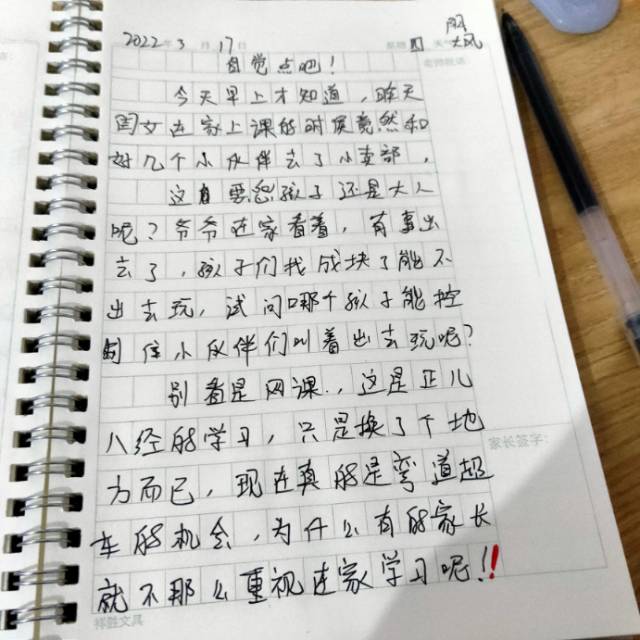 2022年3月17日 星期四 天气 阴 大风
自觉点吧！ 老师教语：
今天早上才知道，昨天
国文在家上课的时候竟然和
好几个小伙伴去了小卖部，
这自要怨孩子还是大人
呢？爷爷在家看着，有事出
去了，孩子们找成块了能不
出去玩，试问哪个孩子能控
制住小伙伴们叫着出去玩呢？
别看是网课，这是正儿
八经的学习，只是换了个地
家长签字：
方而已，现在真的是弯道超
车的机会，为什么有的家长
就不那么重视在家学习呢!!
祥胜文具